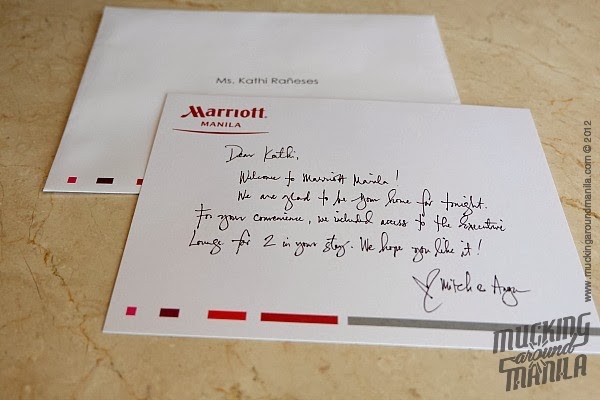 Ms. Kathi Rañeses
Marriott
MANILA
Dear Kathi,
Welcome to Marriott Manila!
We are glad to be your home for tonight.
For your convenience, we included access to the Executive
Lounge for 2 in your stay. We hope you like it!
Mitch &
www.muckingaroundmanila.com © 2012
MUCKING
around
MANILA